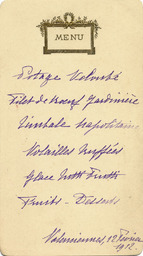 MENU
Potage Velouté
Filet de Boeuf Jardinière
Timbale Napolitaine
Volailles truffées
Glace Tutti Frutti
Fruits - Desserts
Valenciennes, 12 Février
1912.